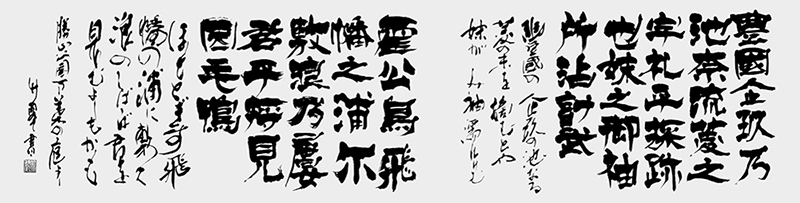 豊國企玖乃
池奈流菱之
宇礼乎採跡
也妹之御袖
所沾計武
豊国の企救の池なる
菱の末を採むとや
妹がみ袖濡れけむ
霍公鳥飛
幡之浦尓
敷浪乃屢
君乎将見
因毛鴨
ほととぎす飛
幡の浦に敷く
浪のしばしば君を
見むよしもがも